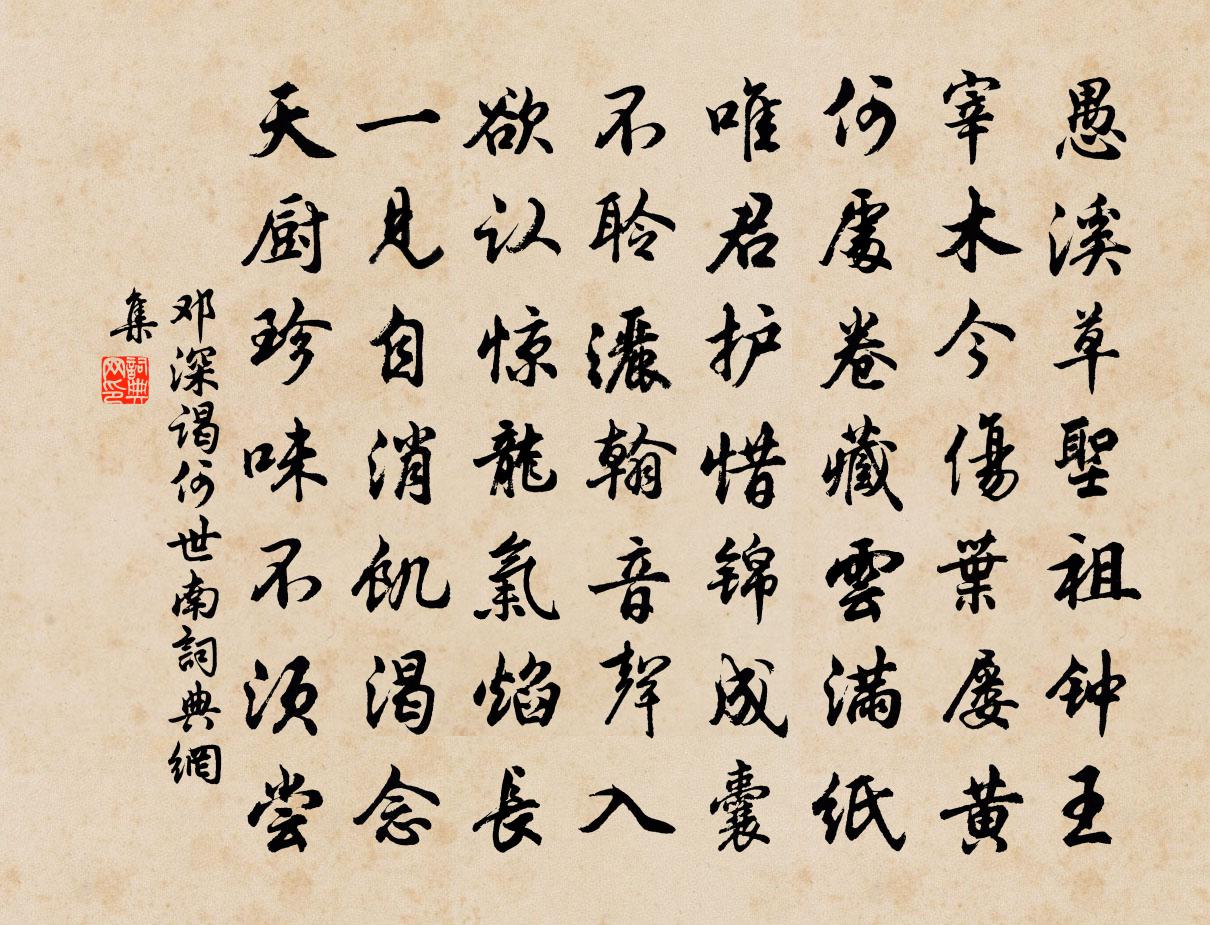 愚溪草聖祖钟王
宰木今傷葉屡黄
何處卷藏雲满紙
唯君护惜锦成囊
不聆灑翰音聲入
欲认惊龍氣焰長
一見自消飢渴念
天厨珍味不须尝
邓深谒何世南詞典網
集
詞典
网印